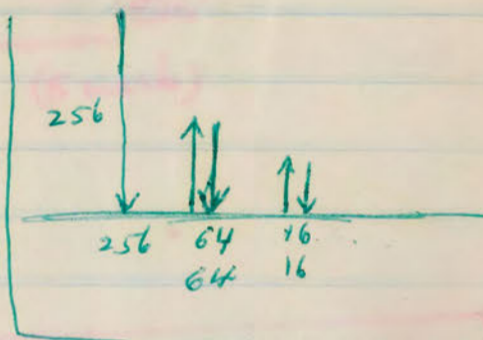 256
256 64 16
64 16